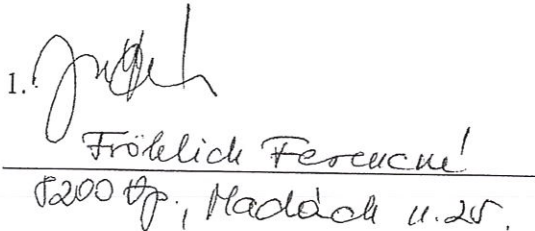 1.
Fröhlich Ferencné
8200 Vp., Madách u. 25.